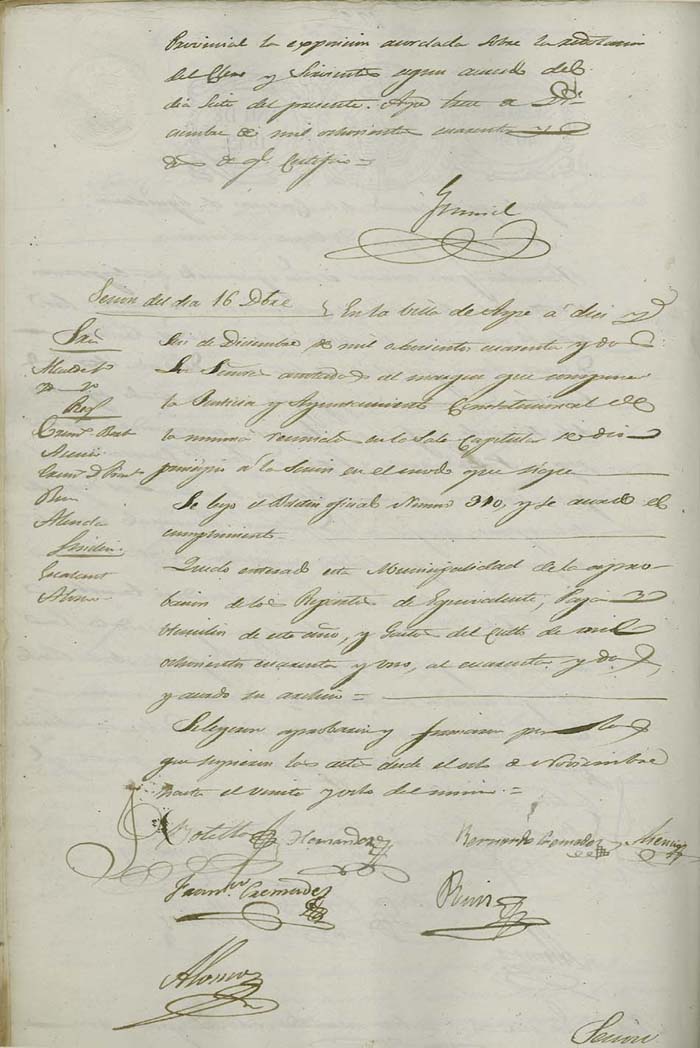 Provincial la exposicion acordada sobre la
del Clero y Sirvientes segun acuerdo del
dia siete del presente. Aspe trece de Di-
ciembre de mil ochocientos cuarenta y
dos de q.e Certifico =
Sesion del dia 16 Dbre
En la villa de Aspe á diez y
seis de Diciembre de mil ochocientos cuarenta y dos
Los Señores anotados al margen que componen
la Justicia y Ayuntamiento Constitucional de
la misma reunidos en la Sala Capitular se dio
principio á la Sesion en el modo que sigue
Sres
Alcalde
Reg
Asencio
Ruiz
Almodo
Sindico
Escalant
Alonso
Se leyo el Boletin oficial Numero 310, y se acordó el
cumplimiento
Quedo enterada esta Municipalidad de la apro-
bacion de los Repartos de Equivalente, Paja y
Utensilios de este año, y Gastos del Culto de mil
ochocientos cuarenta y uno, al cuarenta y dos,
y acordo su archivo =
Se leyeron aprobaron y firmaron por los
que supieron las actas desde el ocho de Noviembre
hasta el veinte y ocho del mismo =
Botella
Hernandez
Bernardo Cremades
Asencio
Fran.co Cremades
Ruiz
Alonso
Sesion